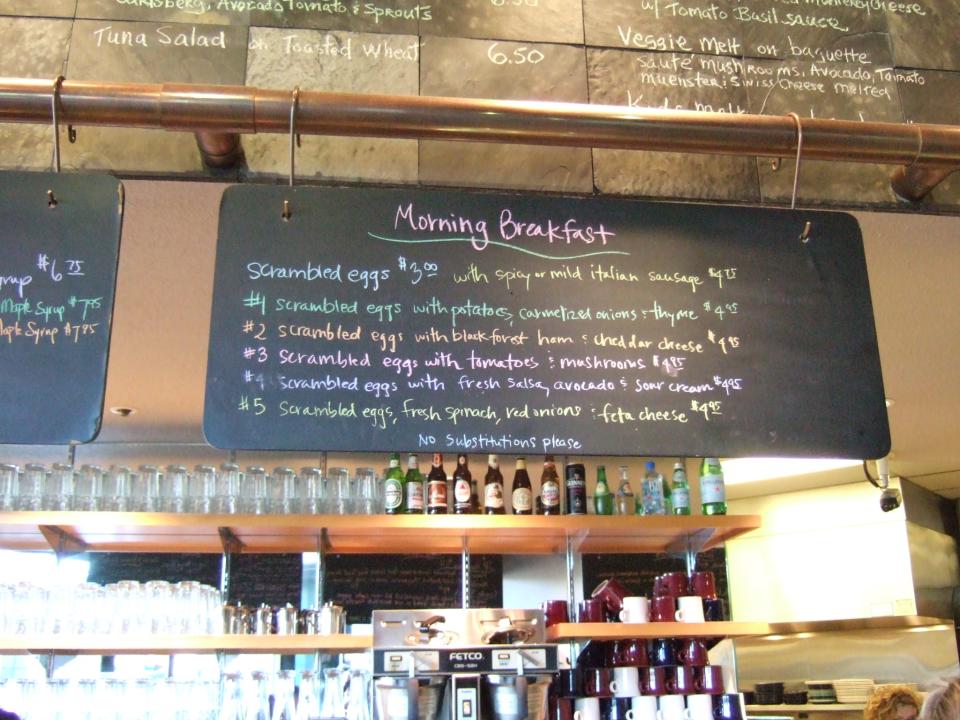 Carlsberg, Avocado Tomato & Sprouts
Tuna Salad on Toasted Wheat 6.50
Cheese
w/ Tomato Basil sauce
Veggie Melt on baguette
saute mushrooms, Avocado, Tomato
muenster & Swiss cheese melted
Kids
$6 75
Maple Syrup $7.95
Maple Syrup $7.95
Morning Breakfast
Scrambled eggs $3.00 with spicy or mild italian sausage $4.75
#1 scrambled eggs with potatoes, carmelized onions & thyme $4.95
#2 scrambled eggs with black forest ham & cheddar cheese $4.95
#3 Scrambled eggs with tomatoes & mushrooms $4.85
#4 Scrambled eggs with fresh salsa, avocado & sour cream $4.95
#5 Scrambled eggs, fresh spinach, red onions & feta cheese $4.95
No substitutions please
GUINNESS
FETCO